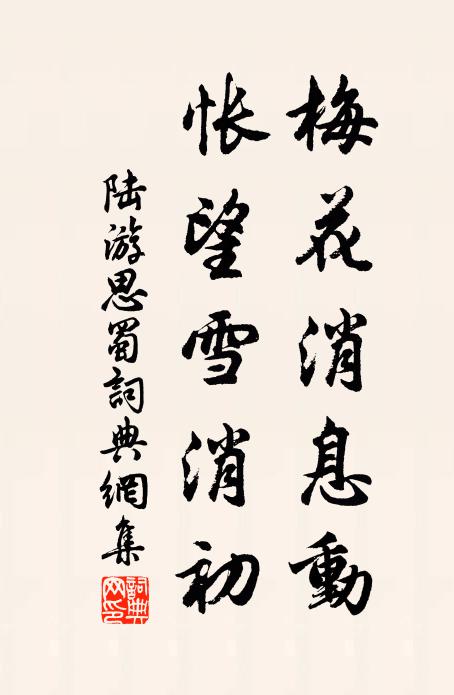 梅花消息動
悵望雪消初
陆游思蜀詞典網集
詞典網印